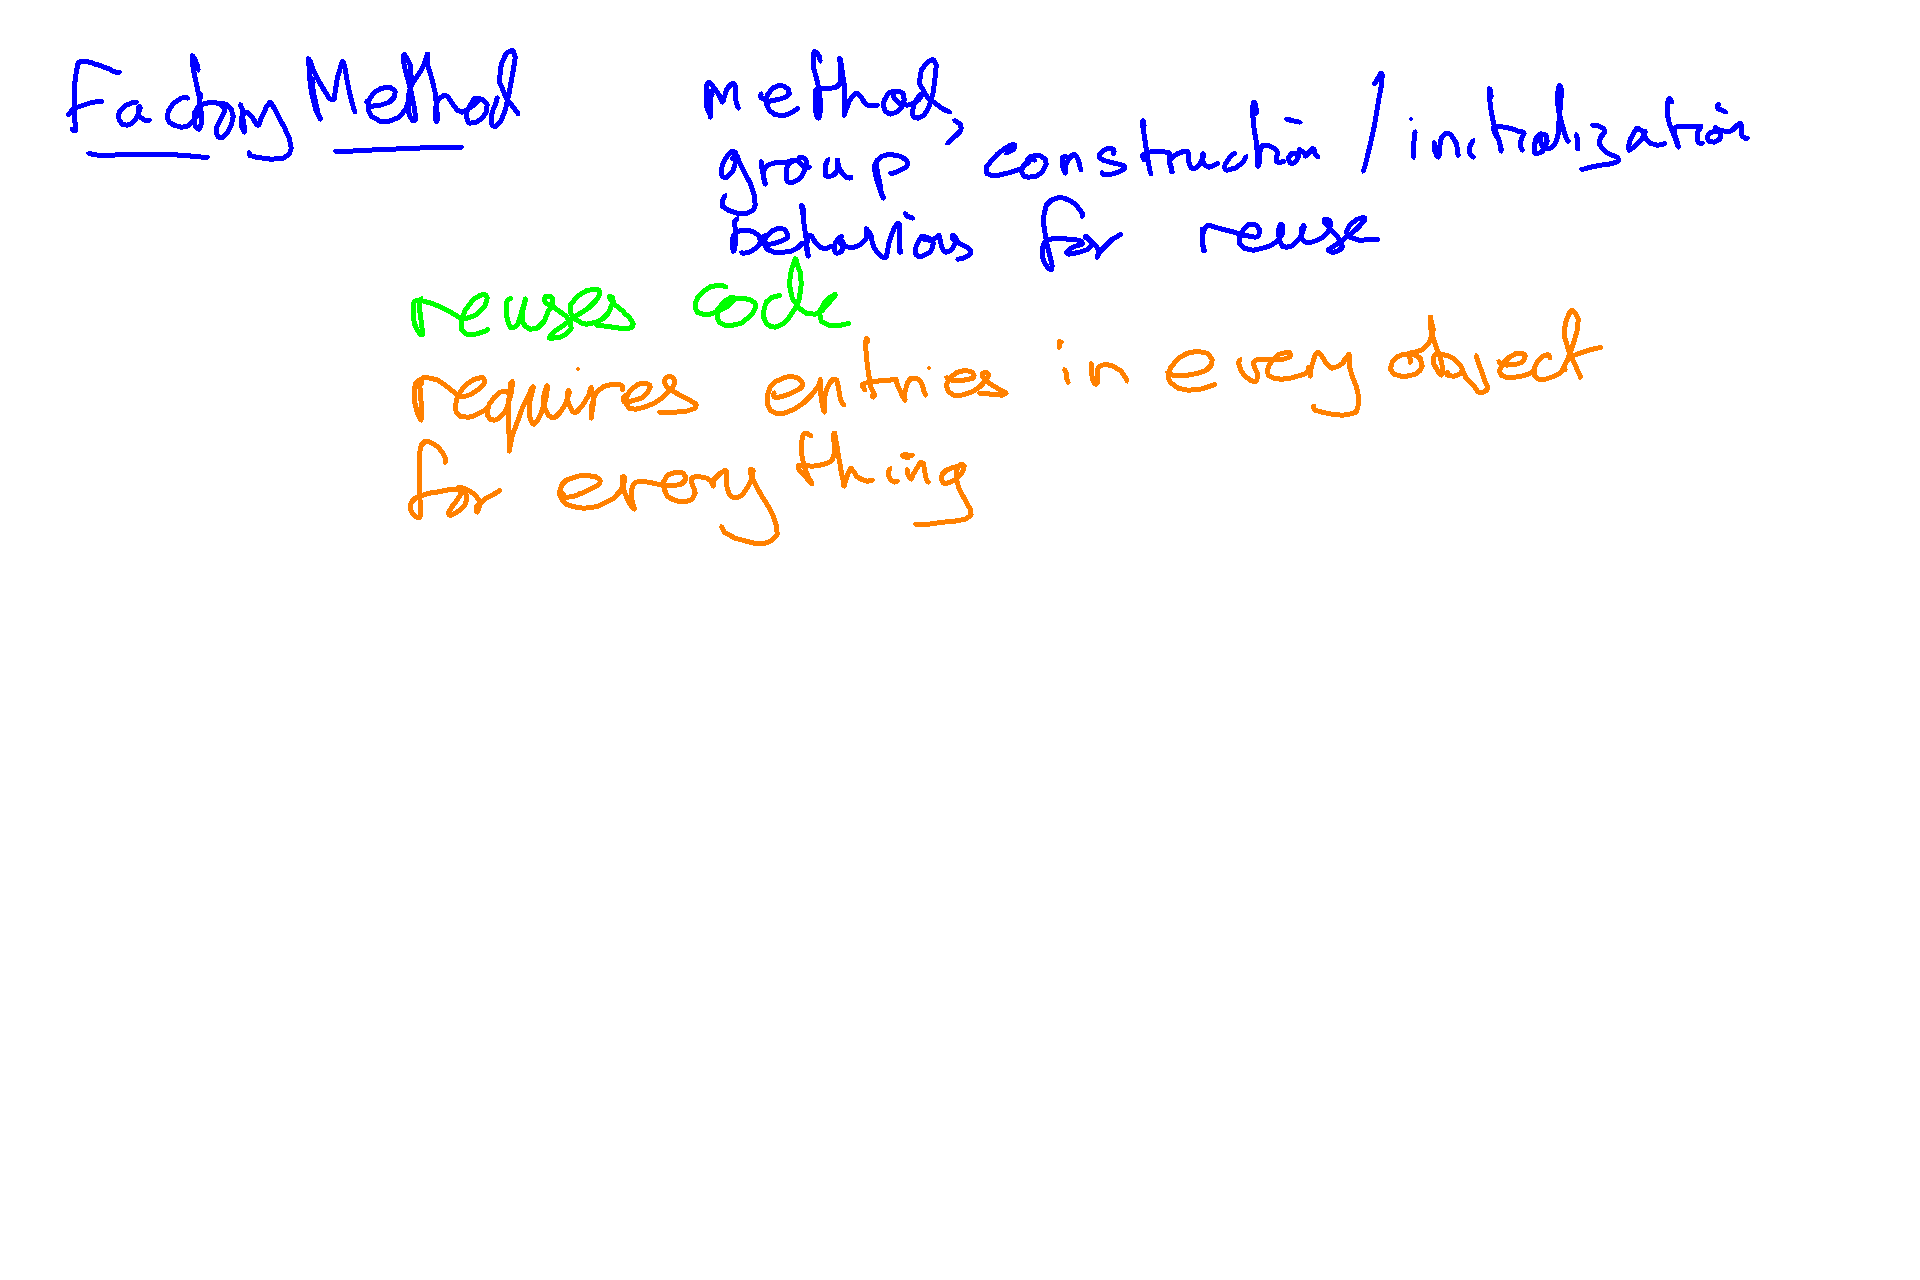 Factory Method
method,
group construction/initialization
behaviors for reuse
reuses code
requires entries in every object
for every thing